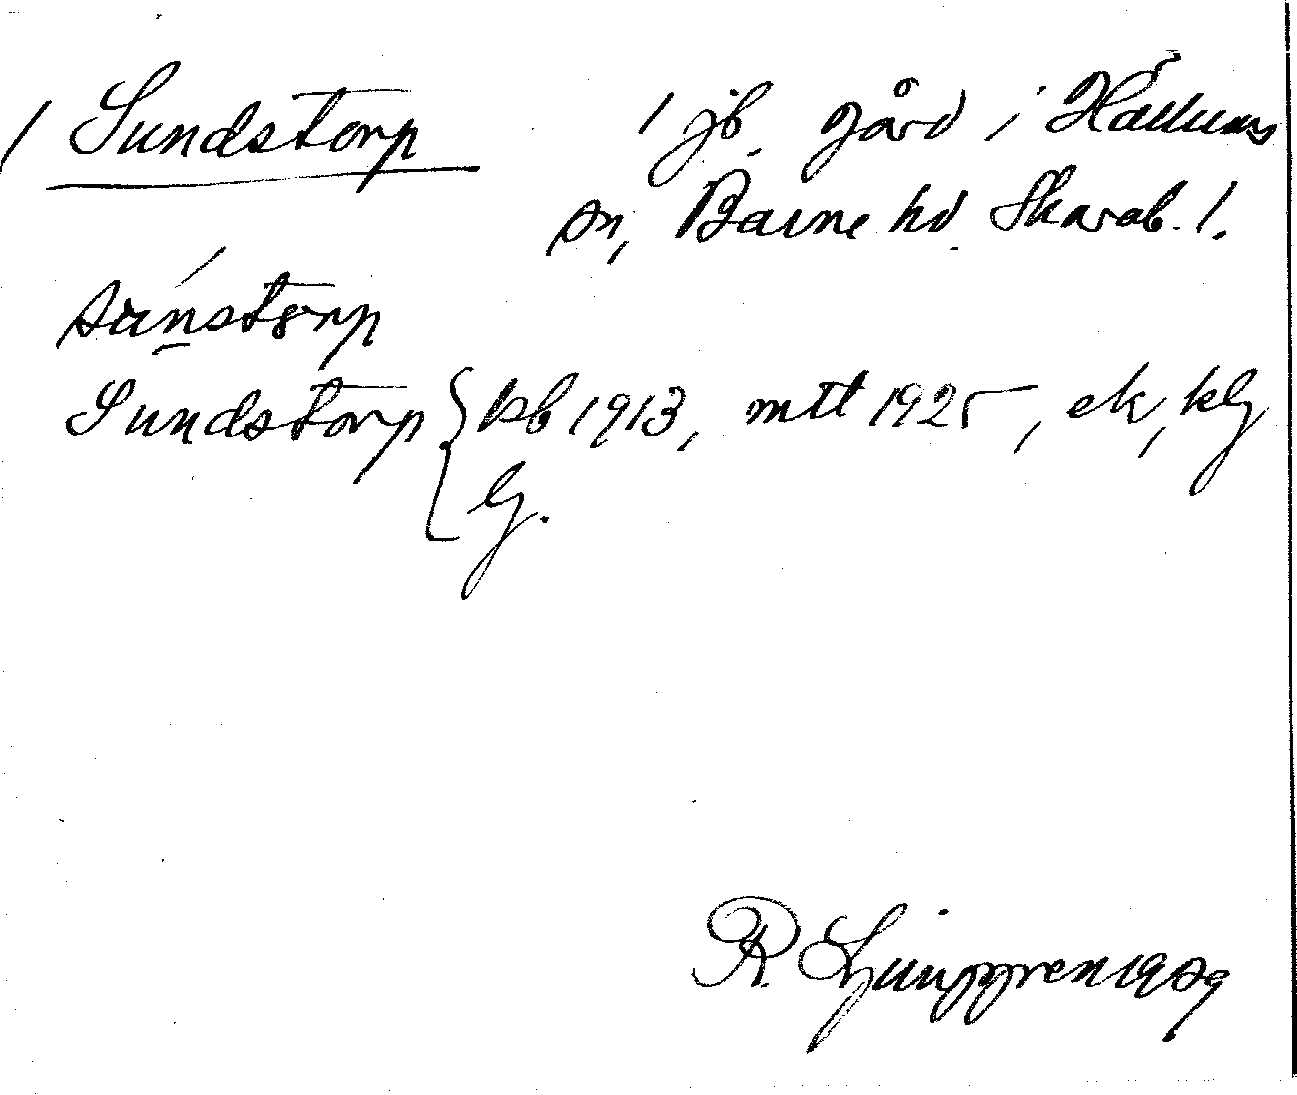 / Sundstorp / jb. gård i Hällums
sn, Barne hd. Skarab. l.
sunstorp
Sundstorp { kb 1913, mtt 1925, ek, klj
lj.
R. Ljunggren 1929